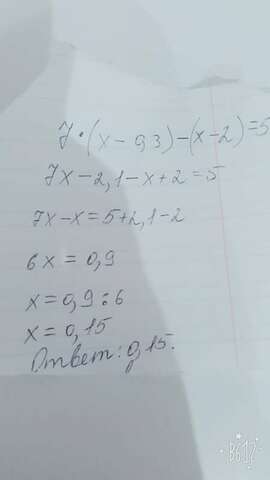 7·(x-0,3)-(x-2)=5
7x-2,1-x+2=5
7x-x=5+2,1-2
6x=0,9
x=0,9:6
x=0,15
Ответ: 0,15.